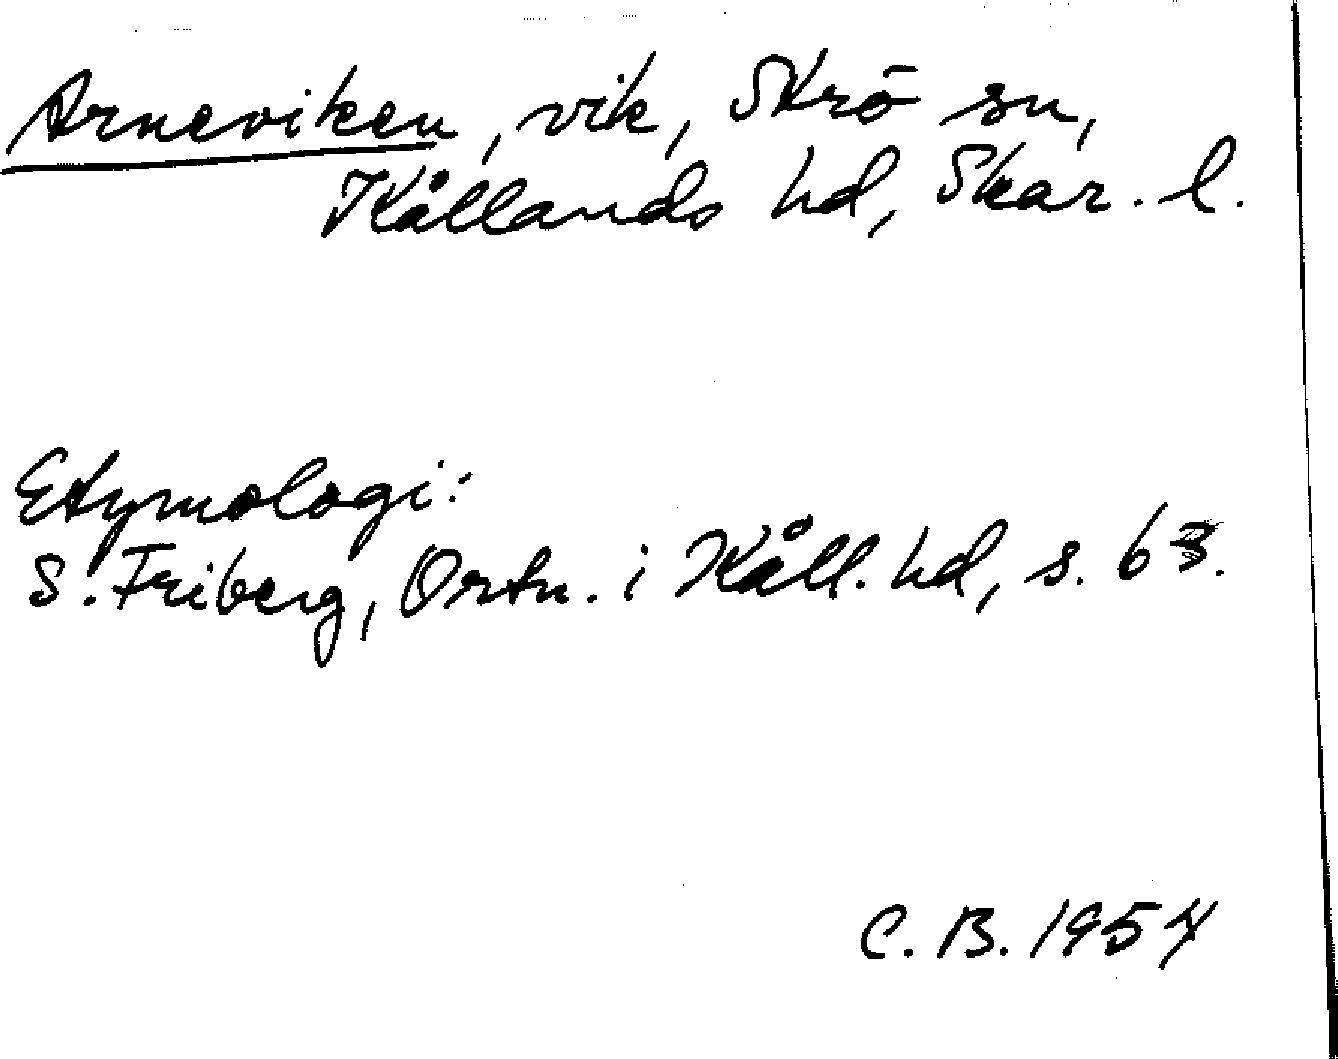 Arneviken, vik, Strö sn,
Kållands hd, Skar. l.
Etymologi:
S. Friberg, Ortn. i Kåll. hd, s. 63.
C. B. 1957